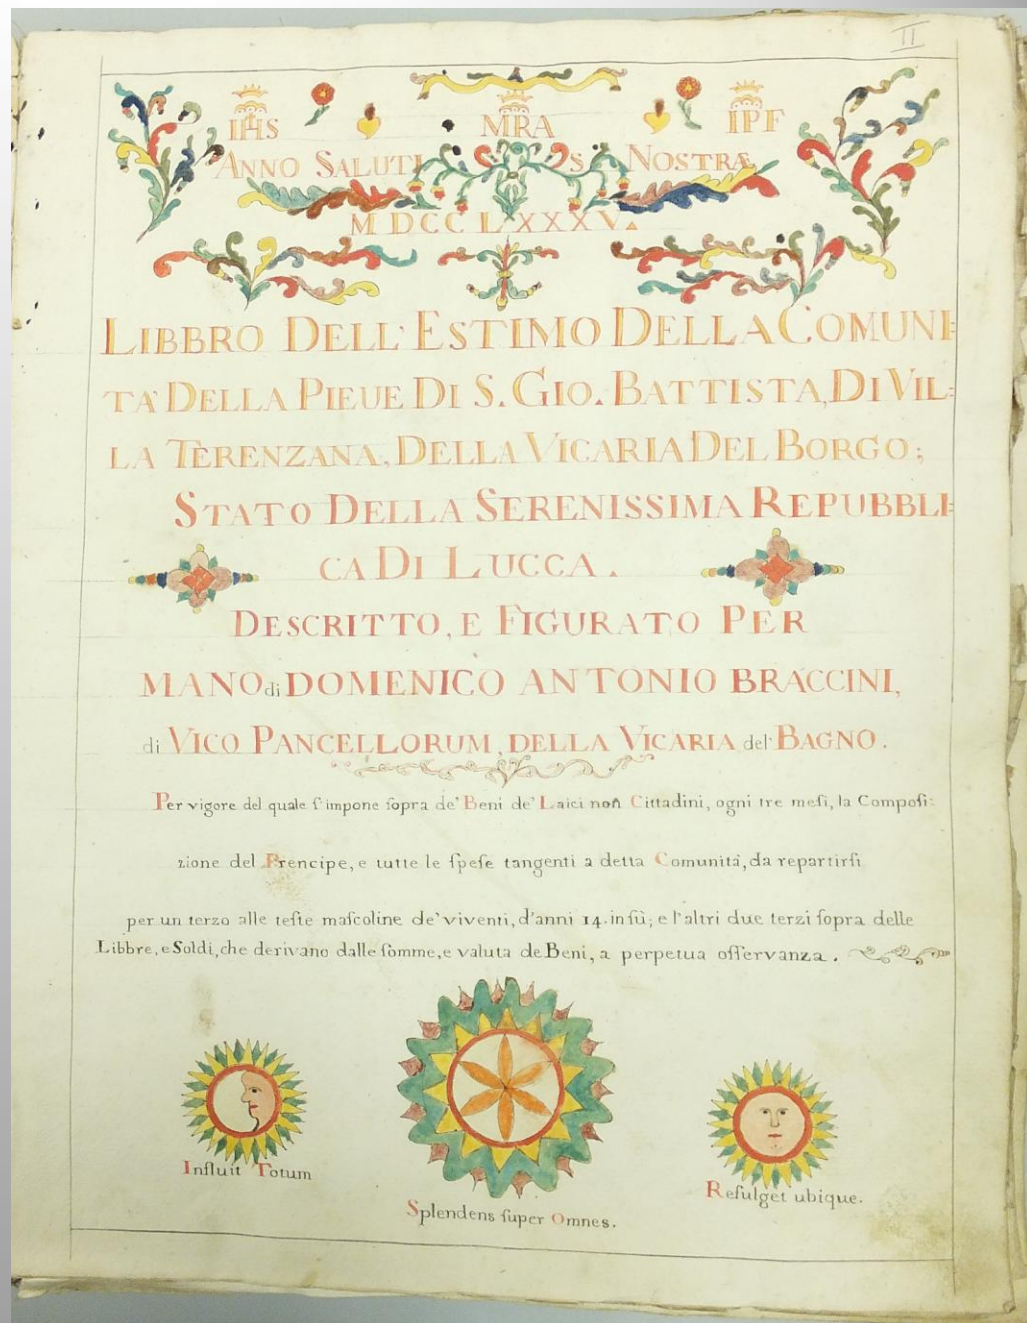 II
IHS MRA IPF
ANNO SALUTIS NOSTRÆ
MDCCLXXXV.
LIBBRO DELL' ESTIMO DELLA COMUNI=
TA' DELLA PIEUE DI S. GIO. BATTISTA, DI VIL=
LA TERENZANA, DELLA VICARIA DEL BORGO;
STATO DELLA SERENISSIMA REPUBBLI=
CA DI LUCCA.
DESCRITTO, E FIGURATO PER
MANO di DOMENICO ANTONIO BRACCINI,
di VICO PANCELLORUM, DELLA VICARIA del BAGNO.
Per vigore del quale s'impone ſopra de' Beni de' Laici non Cittadini, ogni tre meſi, la Compoſi=
zione del Prencipe, e tutte le ſpeſe tangenti a detta Comunità, da repartirſi
per un terzo alle teſte maſcoline de' viventi, d'anni 14. in ſù; e l'altri due terzi ſopra delle
Libbre, e Soldi, che derivano dalle ſomme, e valuta de Beni, a perpetua oſſervanza.
Influit Totum
Splendens ſuper Omnes.
Refulget ubique.